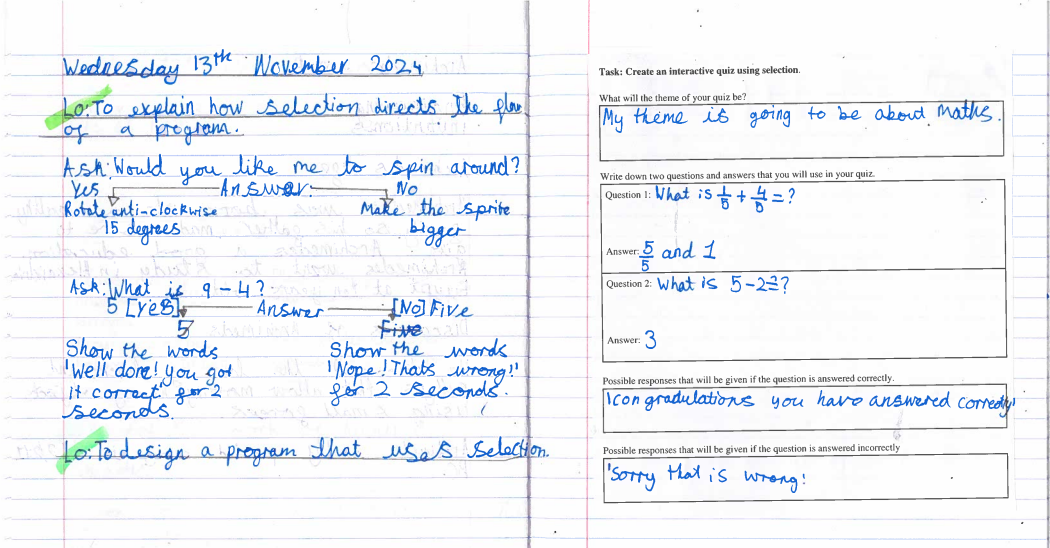 Wednesday 13th November 2024
Lo: To explain how selection directs the flow
of a program.
Ask: Would you like me to spin around?
Yes Answer: No
Rotate anti-clockwise Make the sprite
15 degrees bigger
Ask: What is 9 - 4?
5 [Yes] Answer [No] Five
5 Five
Show the words Show the words
'Well done! you got 'Nope! Thats wrong!'
it correct' for 2 for 2 seconds.
seconds.
Lo: To design a program that uses selection.
Task: Create an interactive quiz using selection.
What will the theme of your quiz be?
My theme is going to be about Maths.
Write down two questions and answers that you will use in your quiz.
Question 1: What is 1/5 + 4/5 = ?
Answer: 5/5 and 1
Question 2: What is 5-2=?
Answer: 3
Possible responses that will be given if the question is answered correctly.
'Congradulations you have answered correctly'
Possible responses that will be given if the question is answered incorrectly
'Sorry that is wrong!